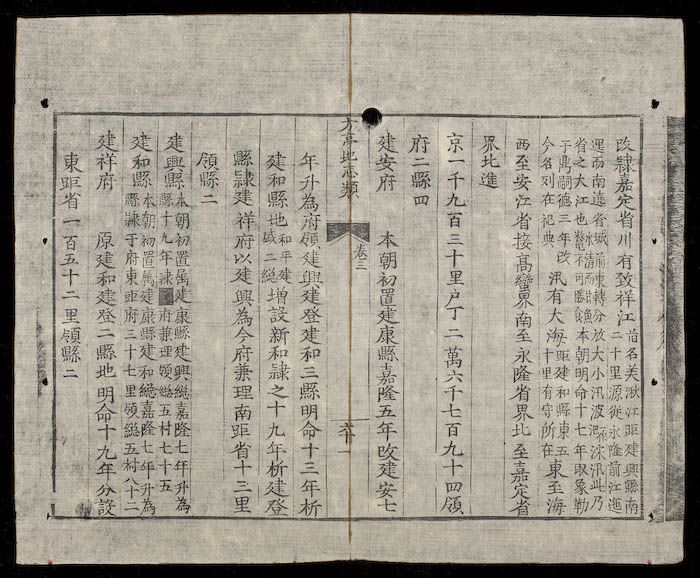 改隸嘉定省川有致祥江
首名美湫江距建興縣南
二十里源從永隆前江迤
運而南邊省城前東轉分放大小汛波
汛此乃
省之大江也
水清而甜魚
鼈不可勝食
本朝明命十七年取象勒
于鼎嗣德三年改
今名列在祀典
汛有大海
距建和縣東五
十里有守所在
東至海
西至安江省接高蠻界南至永隆省界北至嘉定省
界北進
京一千九百三十里戶丁二萬六千七百九十四領
府二縣四
建安府 本朝初置建康縣嘉隆五年改建安七
方亭地志類 卷三 六十一
年升為府領建興建登建和三縣明命十三年析
建和縣地
和平建
盛二總
增設新和隸之十九年析建登
縣隸建祥府以建興為今府兼理南距省十三里
領縣二
建興縣
本朝初置屬建康縣建興總嘉隆七年升為
縣十九年隸府兼理領總五村七十五
建和縣
本朝初置屬建康縣建和總嘉隆七年升為
縣隸于府東距府三十七里領總五村八十二
建祥府 原建和建登二縣地明命十九年分設
東距省一百五十二里領縣二